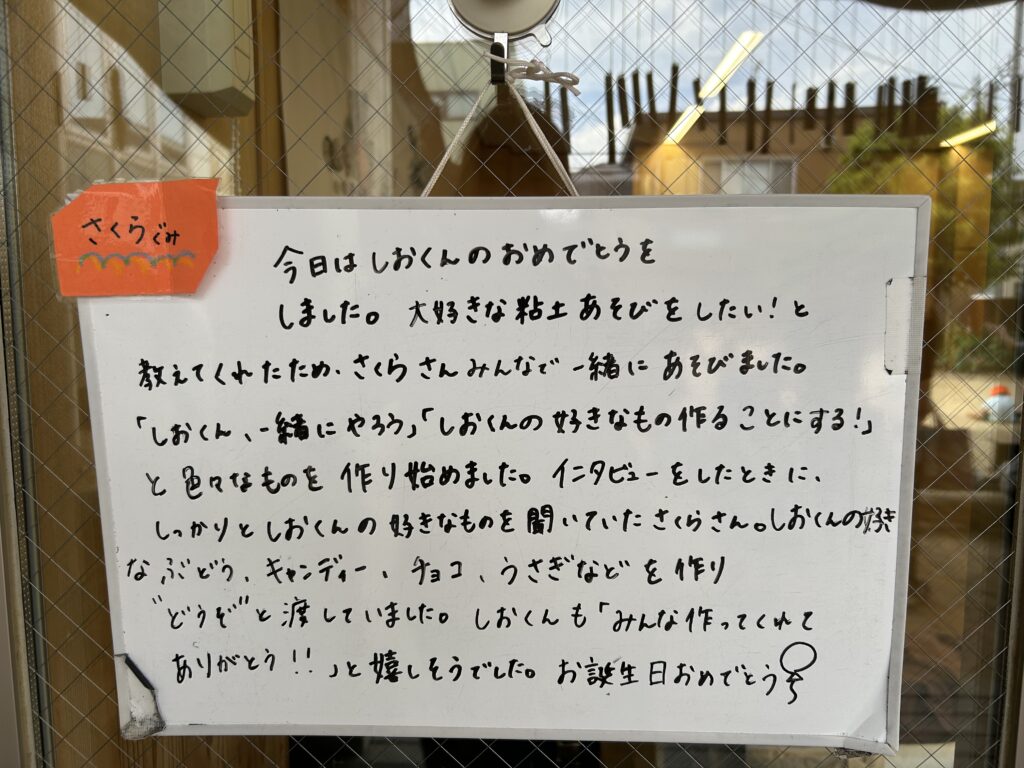 さくらぐみ
今日はしおくんのおめでとうを
しました。大好きな粘土あそびをしたい！と
教えてくれたため、さくらさんみんなで一緒にあそびました。
「しおくん、一緒にやろう」「しおくんの好きなもの作ることにする！」
と色々なものを作り始めました。インタビューをしたときに、
しっかりとしおくんの好きなものを聞いていたさくらさん。しおくんの好き
なぶどう、キャンディー、チョコ、うさぎなどを作り
"どうぞ"と渡していました。しおくんも「みんな作ってくれて
ありがとう!!」と嬉しそうでした。お誕生日おめでとう